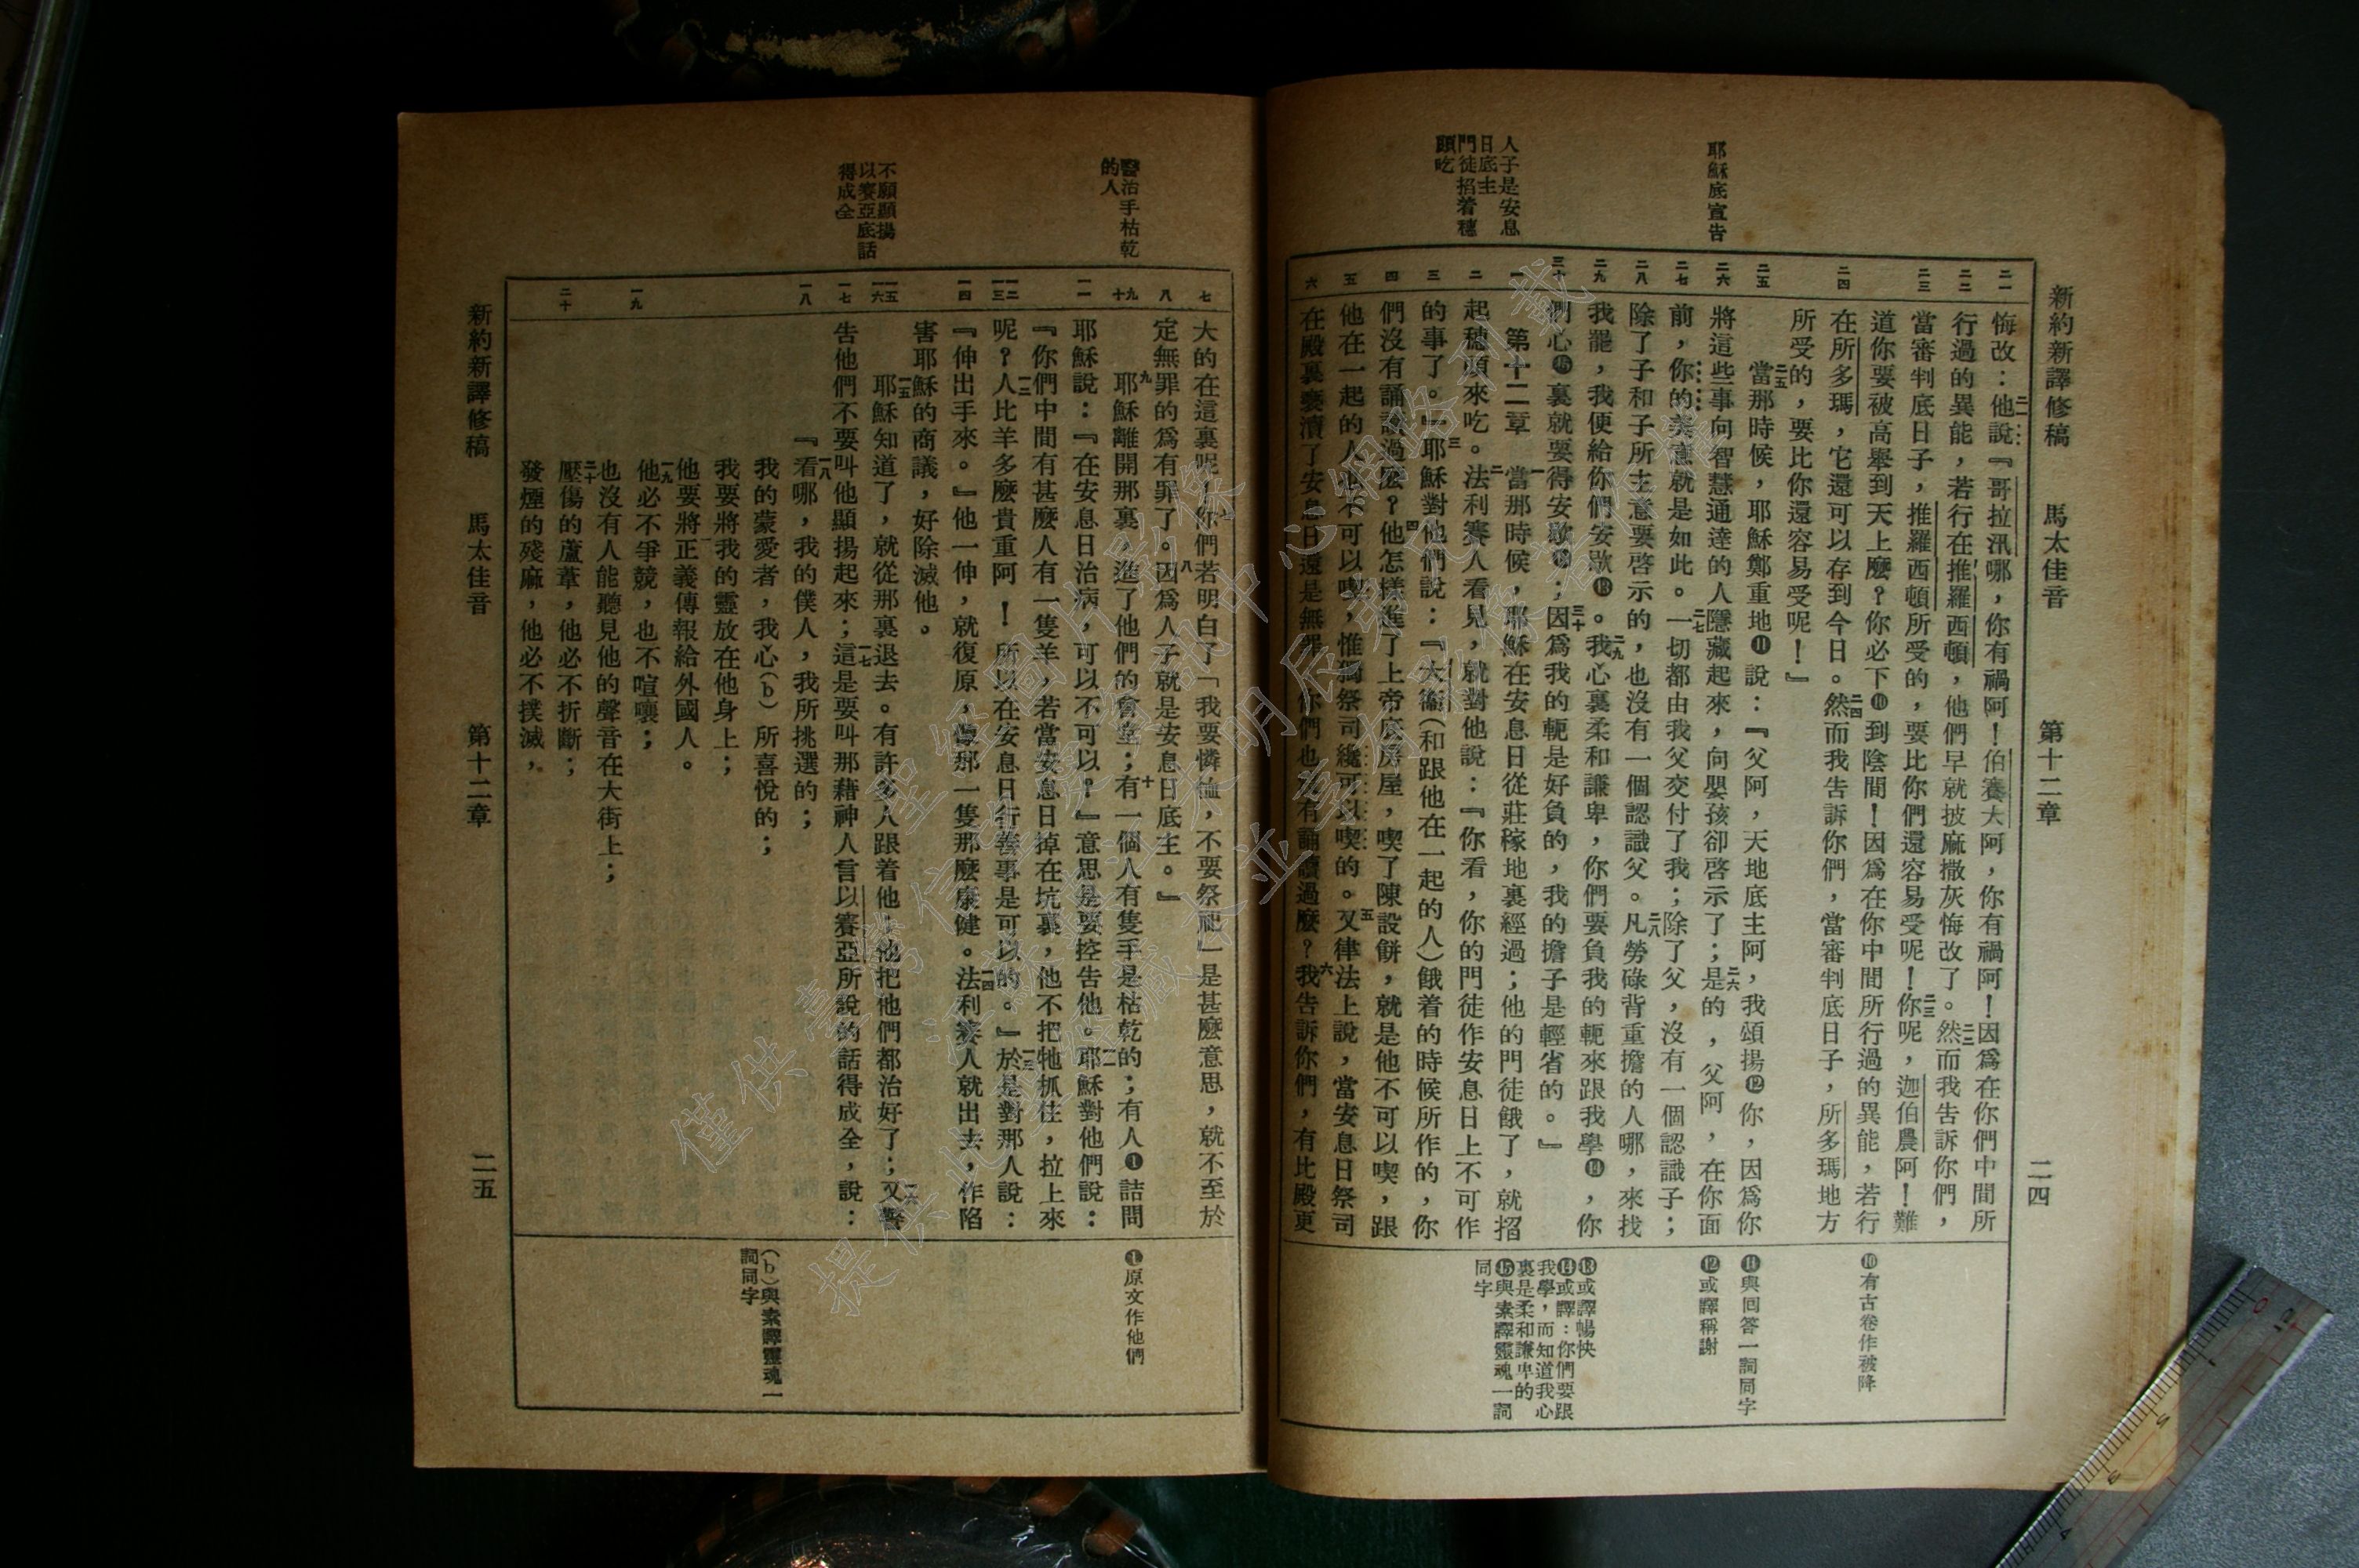 新約新譯修稿 馬太佳音 第十二章 二四
耶穌底宣告
人子是安息
日底主
門徒招着穗
頭吃
二一
二二
二三
二四
二五
二六
二七
二八
二九
三十
一
二
三
四
五
六
悔改：他說『哥拉汛哪，你有禍阿！伯賽大阿，你有禍阿！因爲在你們中間所
行過的異能，若行在推羅西頓，他們早就披麻撒灰悔改了。然而我告訴你們，
當審判底日子，推羅西頓所受的，要比你們還容易受呢！你呢，迦伯農阿！難
道你要被高舉到天上麼？你必下❿到陰間！因爲在你中間所行過的異能，若行
在所多瑪，它還可以存到今日。然而我告訴你們，當審判底日子，所多瑪地方
所受的，要比你還容易受呢！』
當那時候，耶穌鄭重地⓫說：『父阿，天地底主阿，我頌揚⓬你，因爲你
將這些事向智慧通達的人隱藏起來，向嬰孩卻啓示了；是的，父阿，在你面
前，你的美意就是如此。一切都由我父交付了我；除了父，沒有一個認識子；
除了子和子所主意要啓示的，也沒有一個認識父。凡勞碌背重擔的人哪，來找
我罷，我便給你們安歇⓭。我心裏柔和謙卑，你們要負我的軛來跟我學⓮，你
們心⓯裏就要得安歇⓭；因爲我的軛是好負的，我的擔子是輕省的。』
第十二章 當那時候，耶穌在安息日從莊稼地裏經過；他的門徒餓了，就招
起穗頭來吃。法利賽人看見，就對他說：『你看，你的門徒作安息日上不可作
的事了。』耶穌對他們說：『大衞（和跟他在一起的人）餓着的時候所作的，你
們沒有誦讀過麼？他怎樣進了上帝底房屋，喫了陳設餅，就是他不可以喫，跟
他在一起的人也不可以喫，惟獨祭司纔可以喫的。又律法上說，當安息日祭司
在殿裏褻瀆了安息日還是無罪，你們也沒有誦讀過麼？我告訴你們，有比殿更
❿有古卷作被降
⓫與回答一詞同字
⓬或譯稱謝
⓭或譯暢快
⓮或譯：你們要跟
我學，而知道我心
裏是柔和謙卑的
⓯與素譯靈魂一詞
同字
醫治手枯乾
的人
不願顯揚
以賽亞底話
得成全
七
八
九
十
一一
一二
一三
一四
一五
一六
一七
一八
一九
二十
大的在這裏呢！你們若明白了「我要憐恤，不要祭祀」是甚麼意思，就不至於
定無罪的爲有罪了。因爲人子就是安息日底主。』
耶穌離開那裏，進了他們的會堂；有一個人有隻手是枯乾的；有人❶詰問
耶穌說：『在安息日治病，可以不可以？』意思是要控告他。耶穌對他們說：
『你們中間有甚麼人有一隻羊，若當安息日掉在坑裏，他不把牠抓住，拉上來
呢？人比羊多麼貴重阿！所以在安息日行善事是可以的。』於是對那人說：
『伸出手來。』他一伸，就復原，像那一隻那麼康健。法利賽人就出去，作陷
害耶穌的商議，好除滅他。
耶穌知道了，就從那裏退去。有許多人跟着他，他把他們都治好了；又警
告他們不要叫他顯揚起來；這是要叫那藉神人言以賽亞所說的話得成全，說：
『看哪，我的僕人，我所挑選的；
我的蒙愛者，我心（b）所喜悅的；
我要將我的靈放在他身上；
他要將正義傳報給外國人。
他必不爭競，也不喧嚷；
也沒有人能聽見他的聲音在大街上；
壓傷的蘆葦，他必不折斷；
發煙的殘麻，他必不撲滅，
❶原文作他們
（b）與素譯靈魂一
詞同字
新約新譯修稿 馬太佳音 第十二章 二五